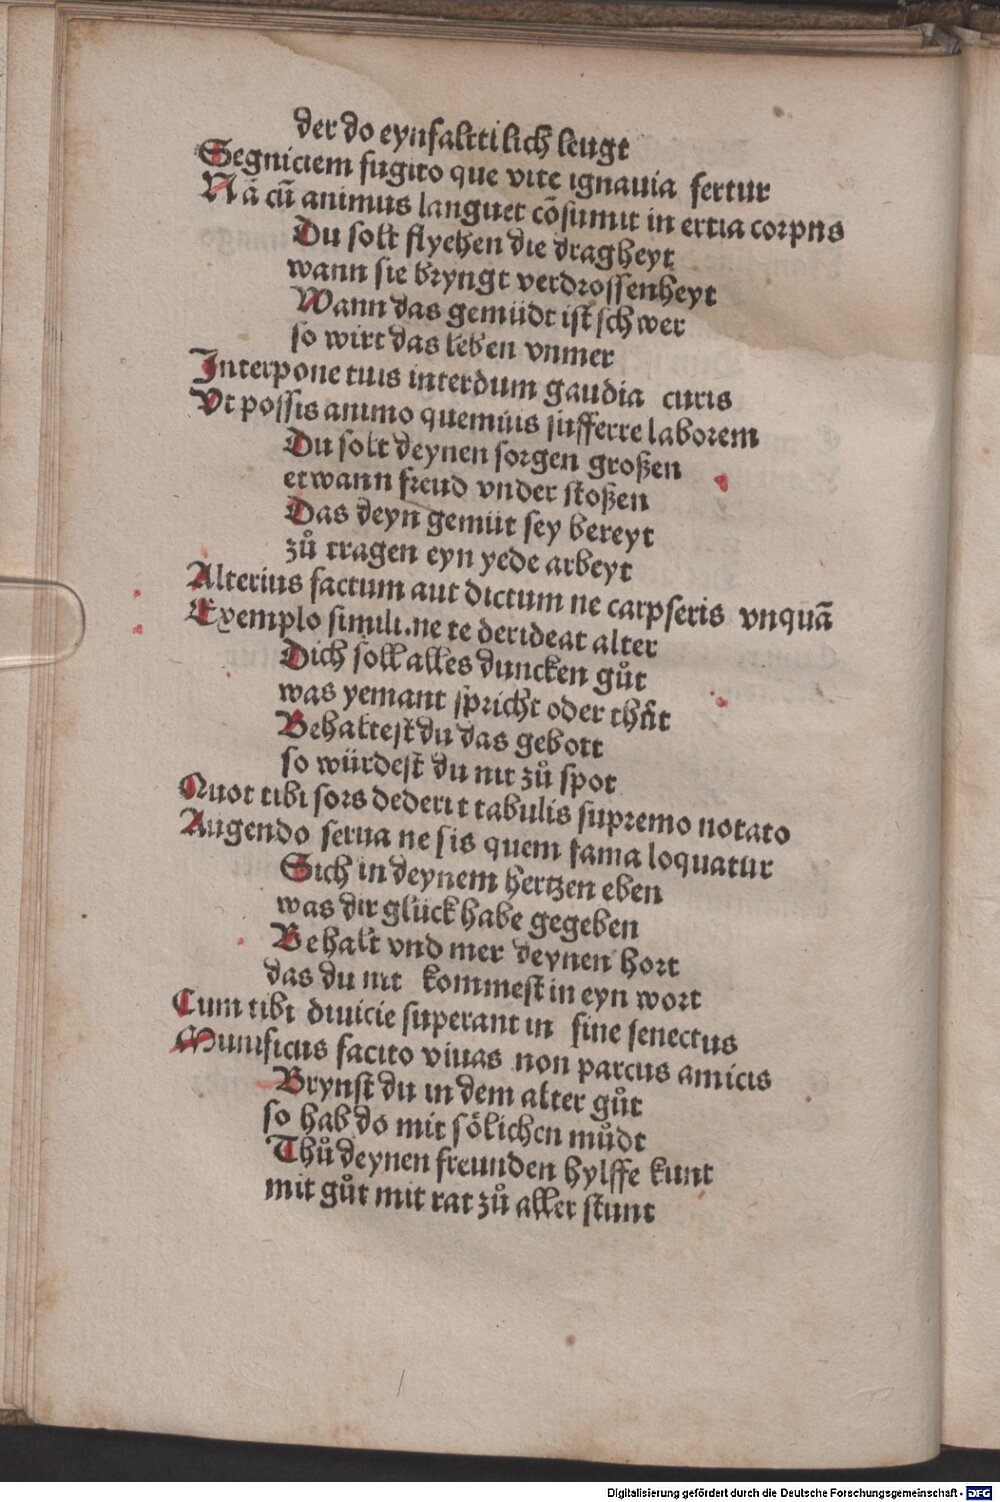 der do eynfalttilich leugt
Segniciem fugito que vite ignauia fertur
Nã cũ animus languet cõsumit in ertia corpus
Du solt flyehen die dragheyt
wann sie bryngt verdrossenheyt
Wann das gemüdt ist schwer
so wirt das leben vnmer
Interpone tuis interdum gaudia curis
Vt possis animo quemuis sufferre laborem
Du solt deynen sorgen großen
etwann freud vnder stoßen
Das deyn gemüt sey bereyt
zů tragen eyn yede arbeyt
Alterius factum aut dictum ne carpseris vnquã
Exemplo simili.ne te derideat alter
Dich soll alles duncken gůt
was yemant spricht oder thůt
Behaltest du das gebott
so würdest du nit zů spot
Quot tibi sors dederit tabulis supremo notato
Augendo serua ne sis quem fama loquatur
Sich in deynem hertzen eben
was dir glück habe gegeben
Behalt vnd mer deynen hort
das du nit kommest in eyn wort
Cum tibi diuicie superant in fine senectus
Munificus facito viuas non parcus amicis
Brynst du in dem alter gůt
so hab do mit sölichen můdt
Thů deynen freunden hylffe kunt
mit gůt mit rat zů aller stunt
Digitalisierung gefördert durch die Deutsche Forschungsgemeinschaft - DFG